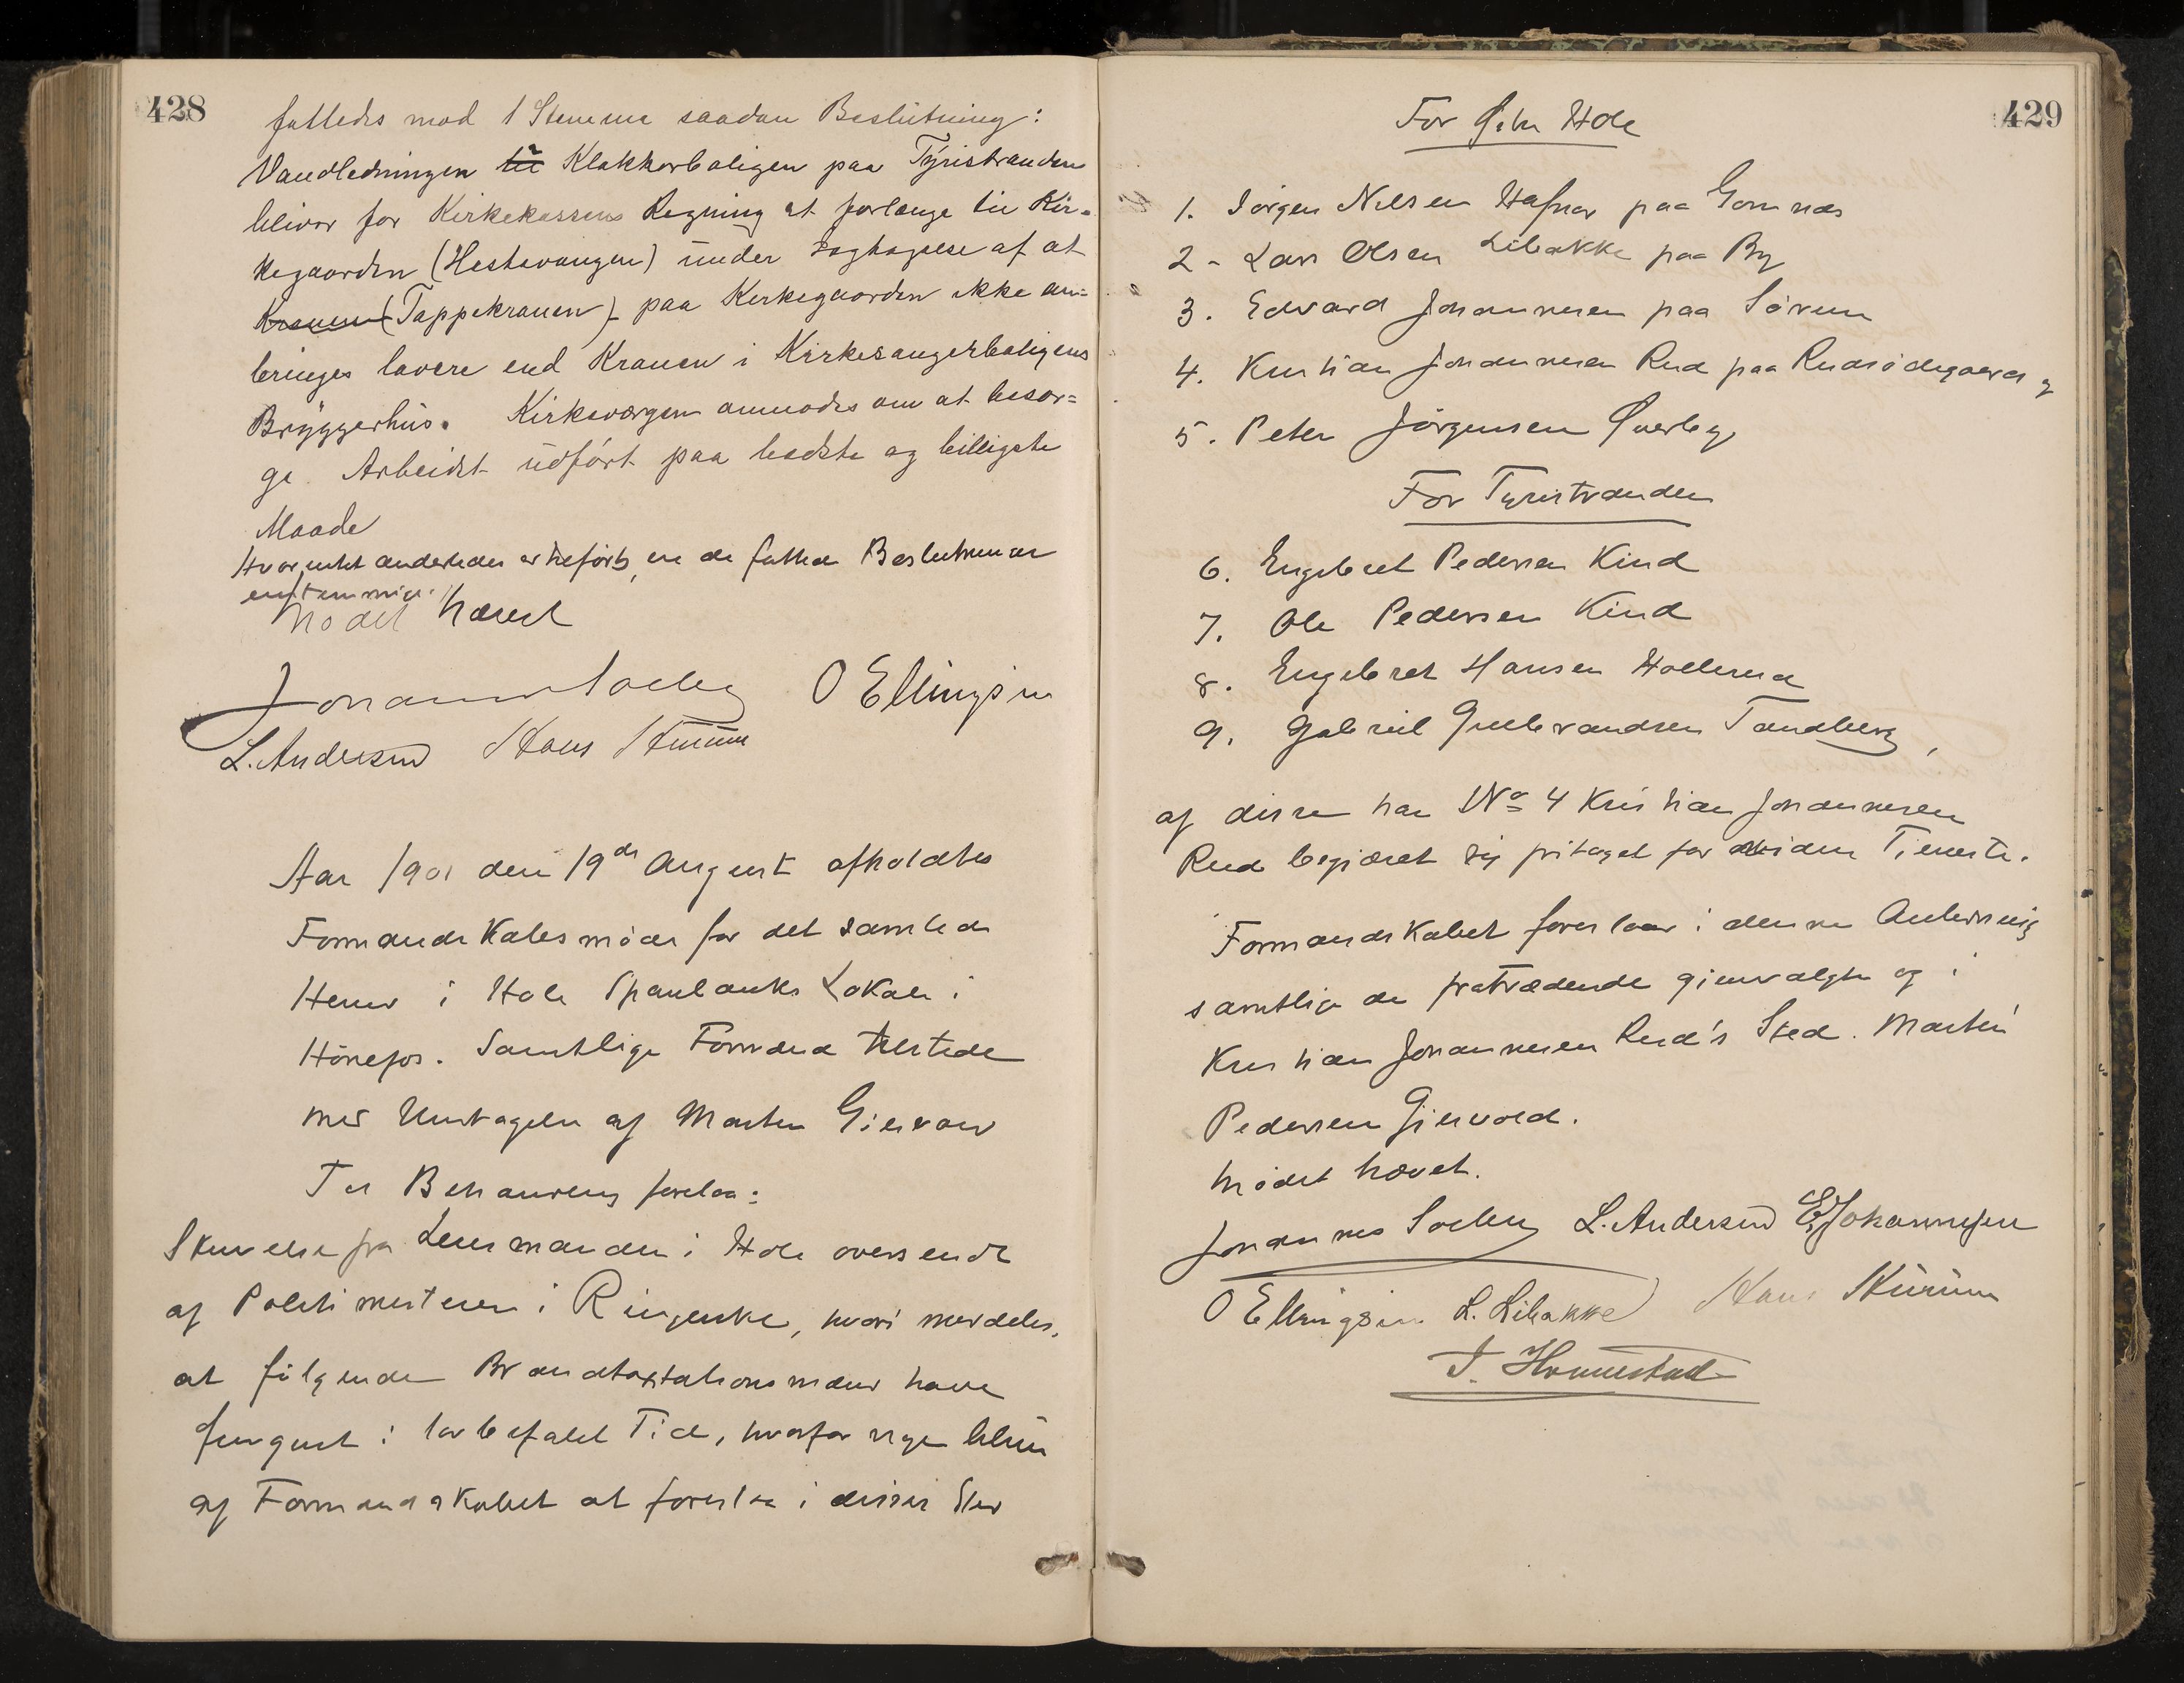 428
fattedes mod 1 Stemme saadan Beslutning:
Vandledningen til Klokkerboligen paa Tyristranden
bliver for Kirkekassens Regning at forlænge til Kir-
kegaarden (Hestevangen) under Iagtagelse af at
Kranen (Tappekranen) paa Kirkegaarden ikke an-
bringes lavere end Kranen i Kirkesangerboligens
Bryggerhus. Kirkeværgen anmodes om at besør-
ge Arbeidet udført paa bedste og billigste
Maade
Hvor intet anderledes er tilført, er de fattede Beslutninger
enstemmige.
Mødet hævet
Johannes Sørby O Ellingsen
L. Andersen Hans Hurum
Aar 1901 den 19de August afholdtes
Formandskabsmøde for det samlede
Herred i Hole Sparebanks Lokale i
Hönefos. Samtlige Formænd tilstede
med Undtagelse af Morten Gjesvold
Til Behandling forelaa:
Skrivelse fra Lensmanden i Hole oversendt
af Politimesteren i Ringerike, hvori meddeles,
at følgende Brandtaxtationsmænd have
fungeret i lovbefalet Tid, hvorfor nye bliver
af Formandskabet at foreslaa i disses Sted
429
For Hole
1. Jörgen Nilsen Hafnor paa Gomnæs
2 - Lars Olsen Libakke paa By
3. Edvard Johannesen paa Sörum
4. Kristian Johannesen Rud paa Rudsödegaard og
5. Peter Jörgensen Överby
For Tyristranden
6. Engebret Pedersen Kind
7. Ole Pedersen Kind
8. Engebret Hansen Hollerud
9. Gabriel Gulbrandsen Tandberg,
af disse har No 4 Kristian Johannesen
Rud begjæret sig fritaget for videre Tieneste.
Formandskabet foreslaar i denne Anledning
samtlige de fratrædende gjenvalgte og i
Kristian Johannesen Rud's Sted Morten
Pedersen Gjesvold.
Mödet hævet.
Johannes Sørby L. Andersen E Johannesen
O Ellingsen L. Libakke Hans Hurum